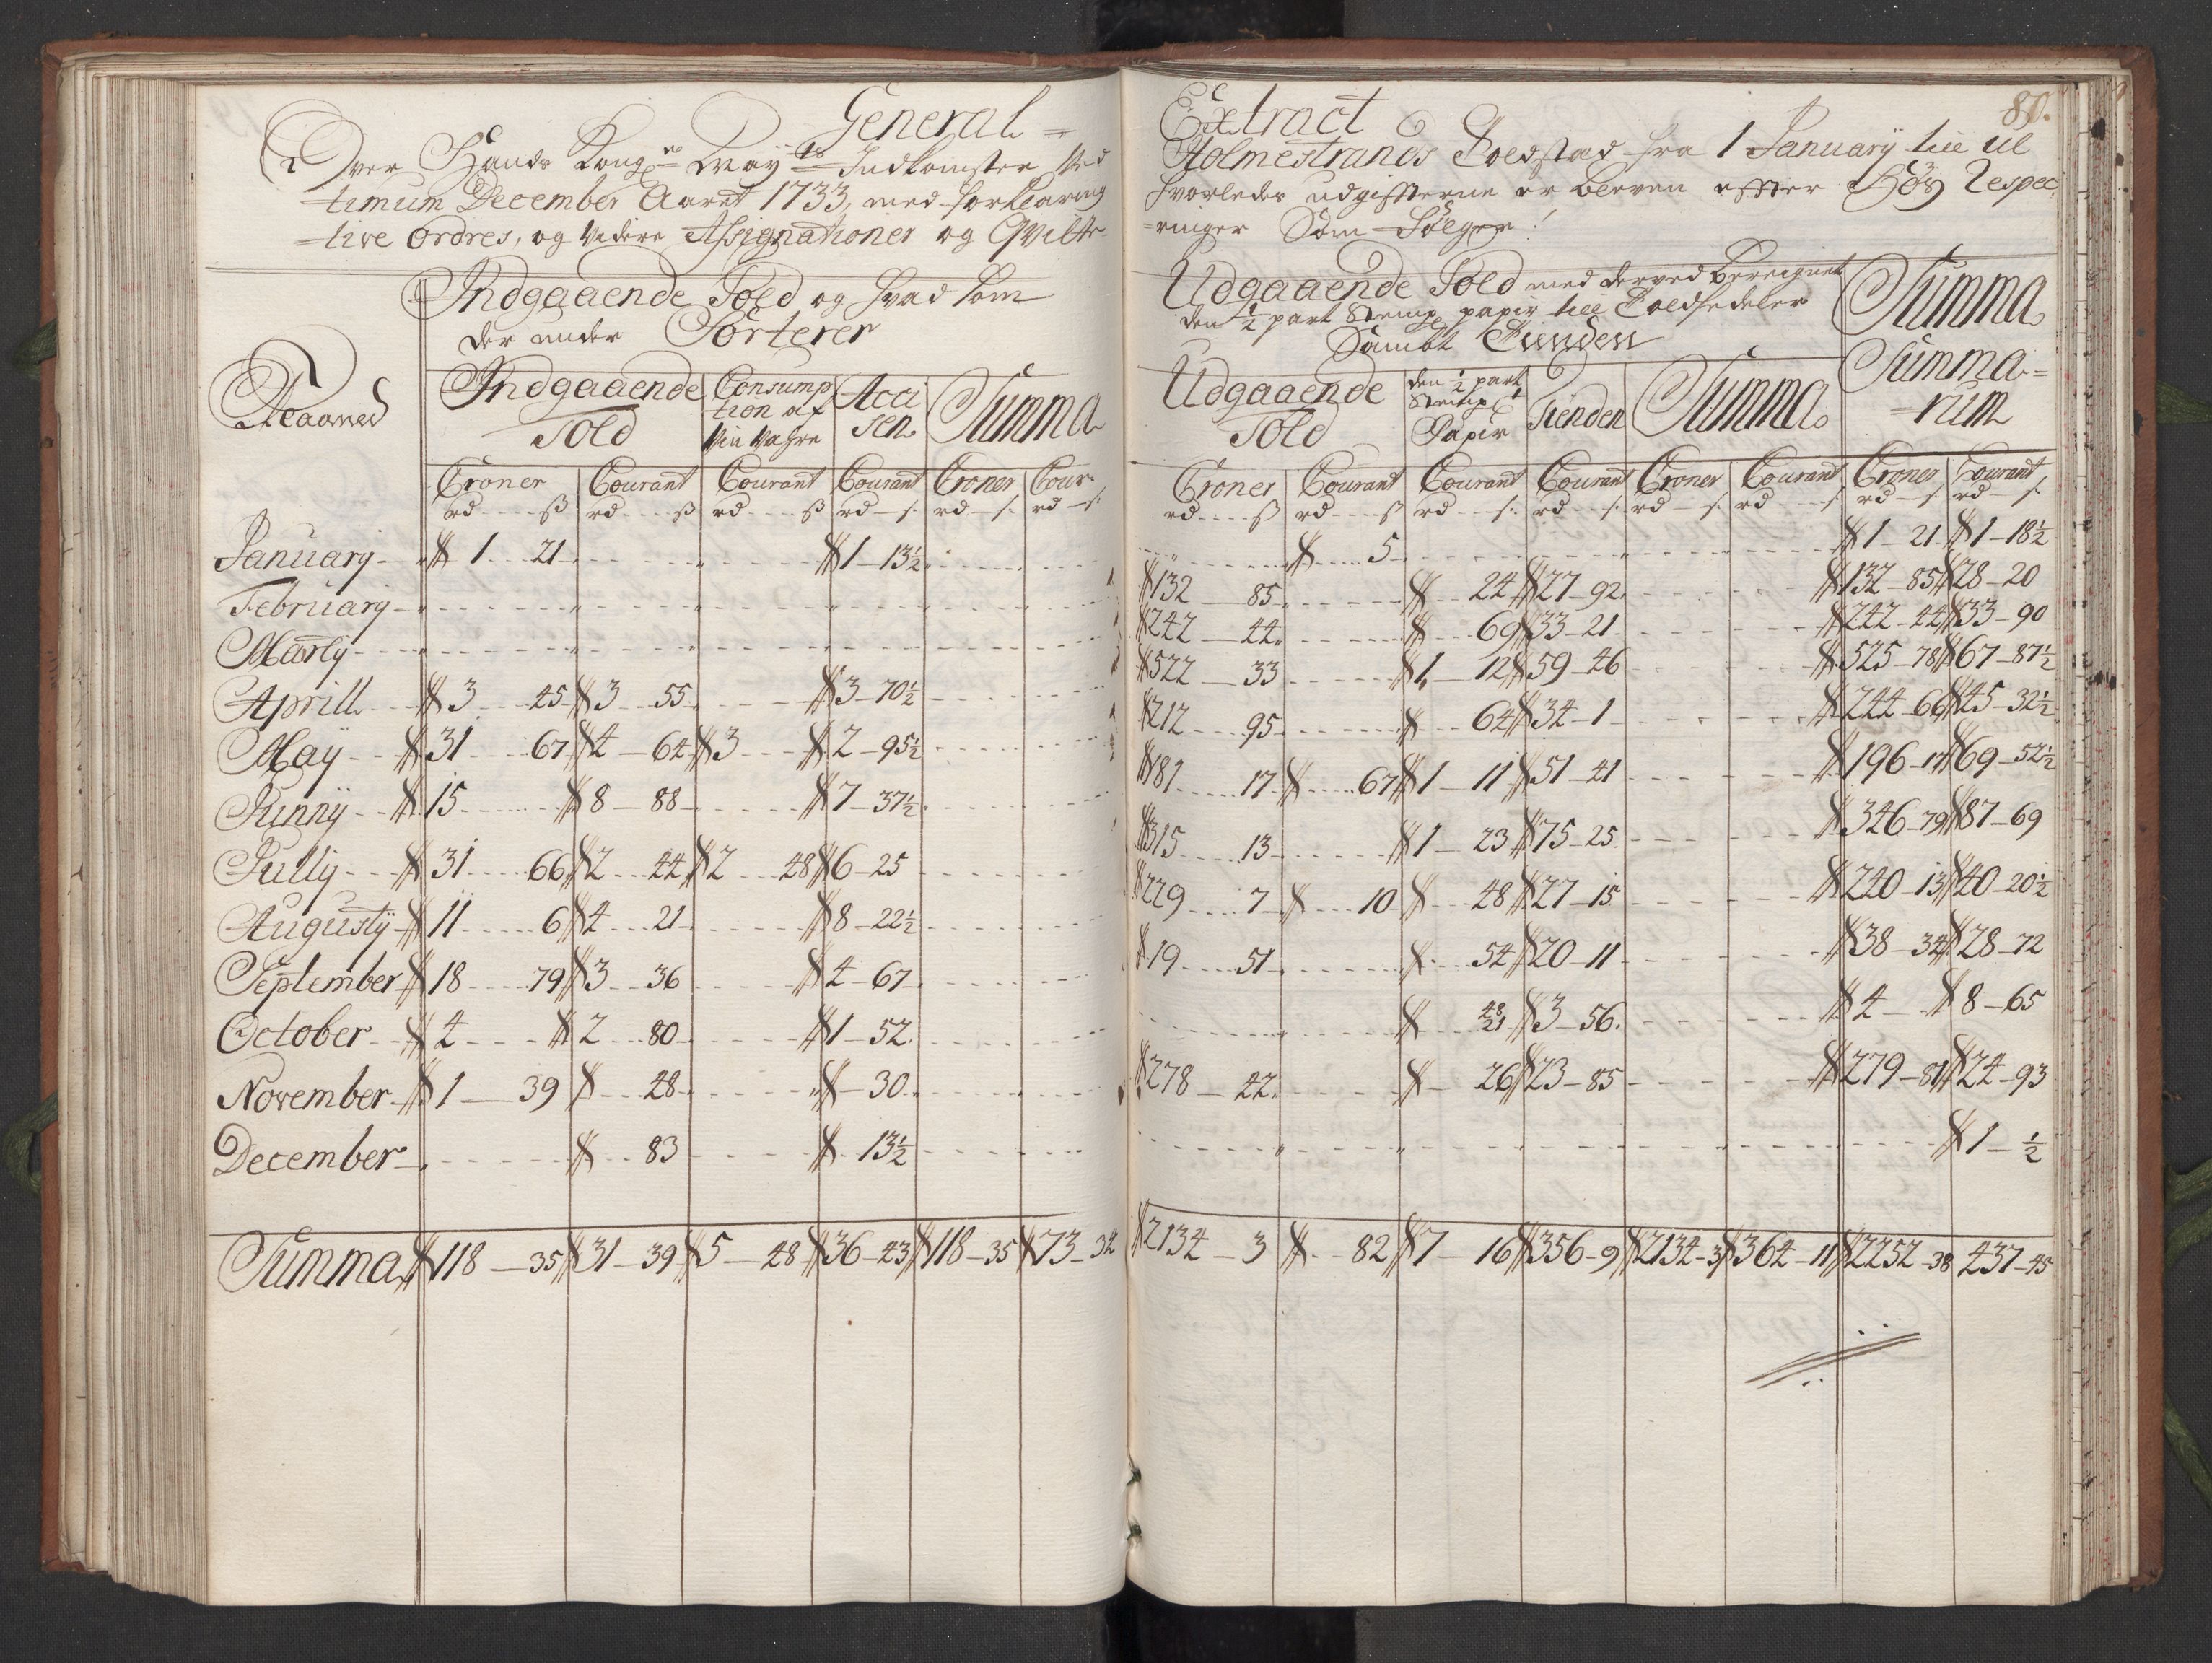 General = Extract
80.
Over Hands Kong: May:ts Indkomster Ved Holmestrands Toldstad fra 1 January till ul
timum December Aaret 1733, med forklaring hvorledes udgiffterne er bleven effter Høy Respec
=tive Ordres, og Videre Assignationer og Qvitte =ringer Som Følger!
Indgaaende Told og hvad som
der under Sorterer
Udgaaende Told med derved beregnet
den ½ part Stemp. papir till Toldsedeler
Sambt Tienden
Summa
Summa=
=rum
Maaned
Indgaaende Told
Consump
tion af
Viin Vahre
Acci
sen
Summa
Udgaaende Told
den ½ part
Stemp
Papir
Tienden
Summa
Croner Courant Courant Courant Croner Cour: Croner Courant Courant Courant Croner Courant Croner Courant
rd ß rd ß rd ß rd ß rd ß rd ß rd ß rd ß rd ß rd ß rd ß rd ß rd ß rd ß
January 1 21 1 13½ 5 1 21 1 18½
February 132 85 24 27 92 132 85 28 20
Martÿ 242 44 69 33 21 242 44 33 90
Aprill 3 45 3 55 3 70½ 522 33 1 12 59 46 525 78 67 87½
Maÿ 31 67 4 64 3 2 95½ 212 95 64 34 1 244 66 45 32½
Junnÿ 15 8 88 7 37½ 181 17 67 1 11 51 41 196 17 69 52½
Jullÿ 31 66 2 44 2 48 6 25 315 13 1 23 75 25 346 79 87 69
Augustÿ 11 6 4 21 8 22½ 229 7 10 48 27 15 240 13 40 20½
September 18 79 3 36 4 67 19 51 54 20 11 38 34 28 72
October 4 2 80 1 52 3 56 4 8 65
November 1 39 48 30 278 42 26 23 85 279 81 24 93
December 83 13½ 1 ½
Summa 118 35 31 39 5 48 36 43 118 35 73 34 2134 3 82 7 16 356 9 2134 3 364 11 2252 38 437 45